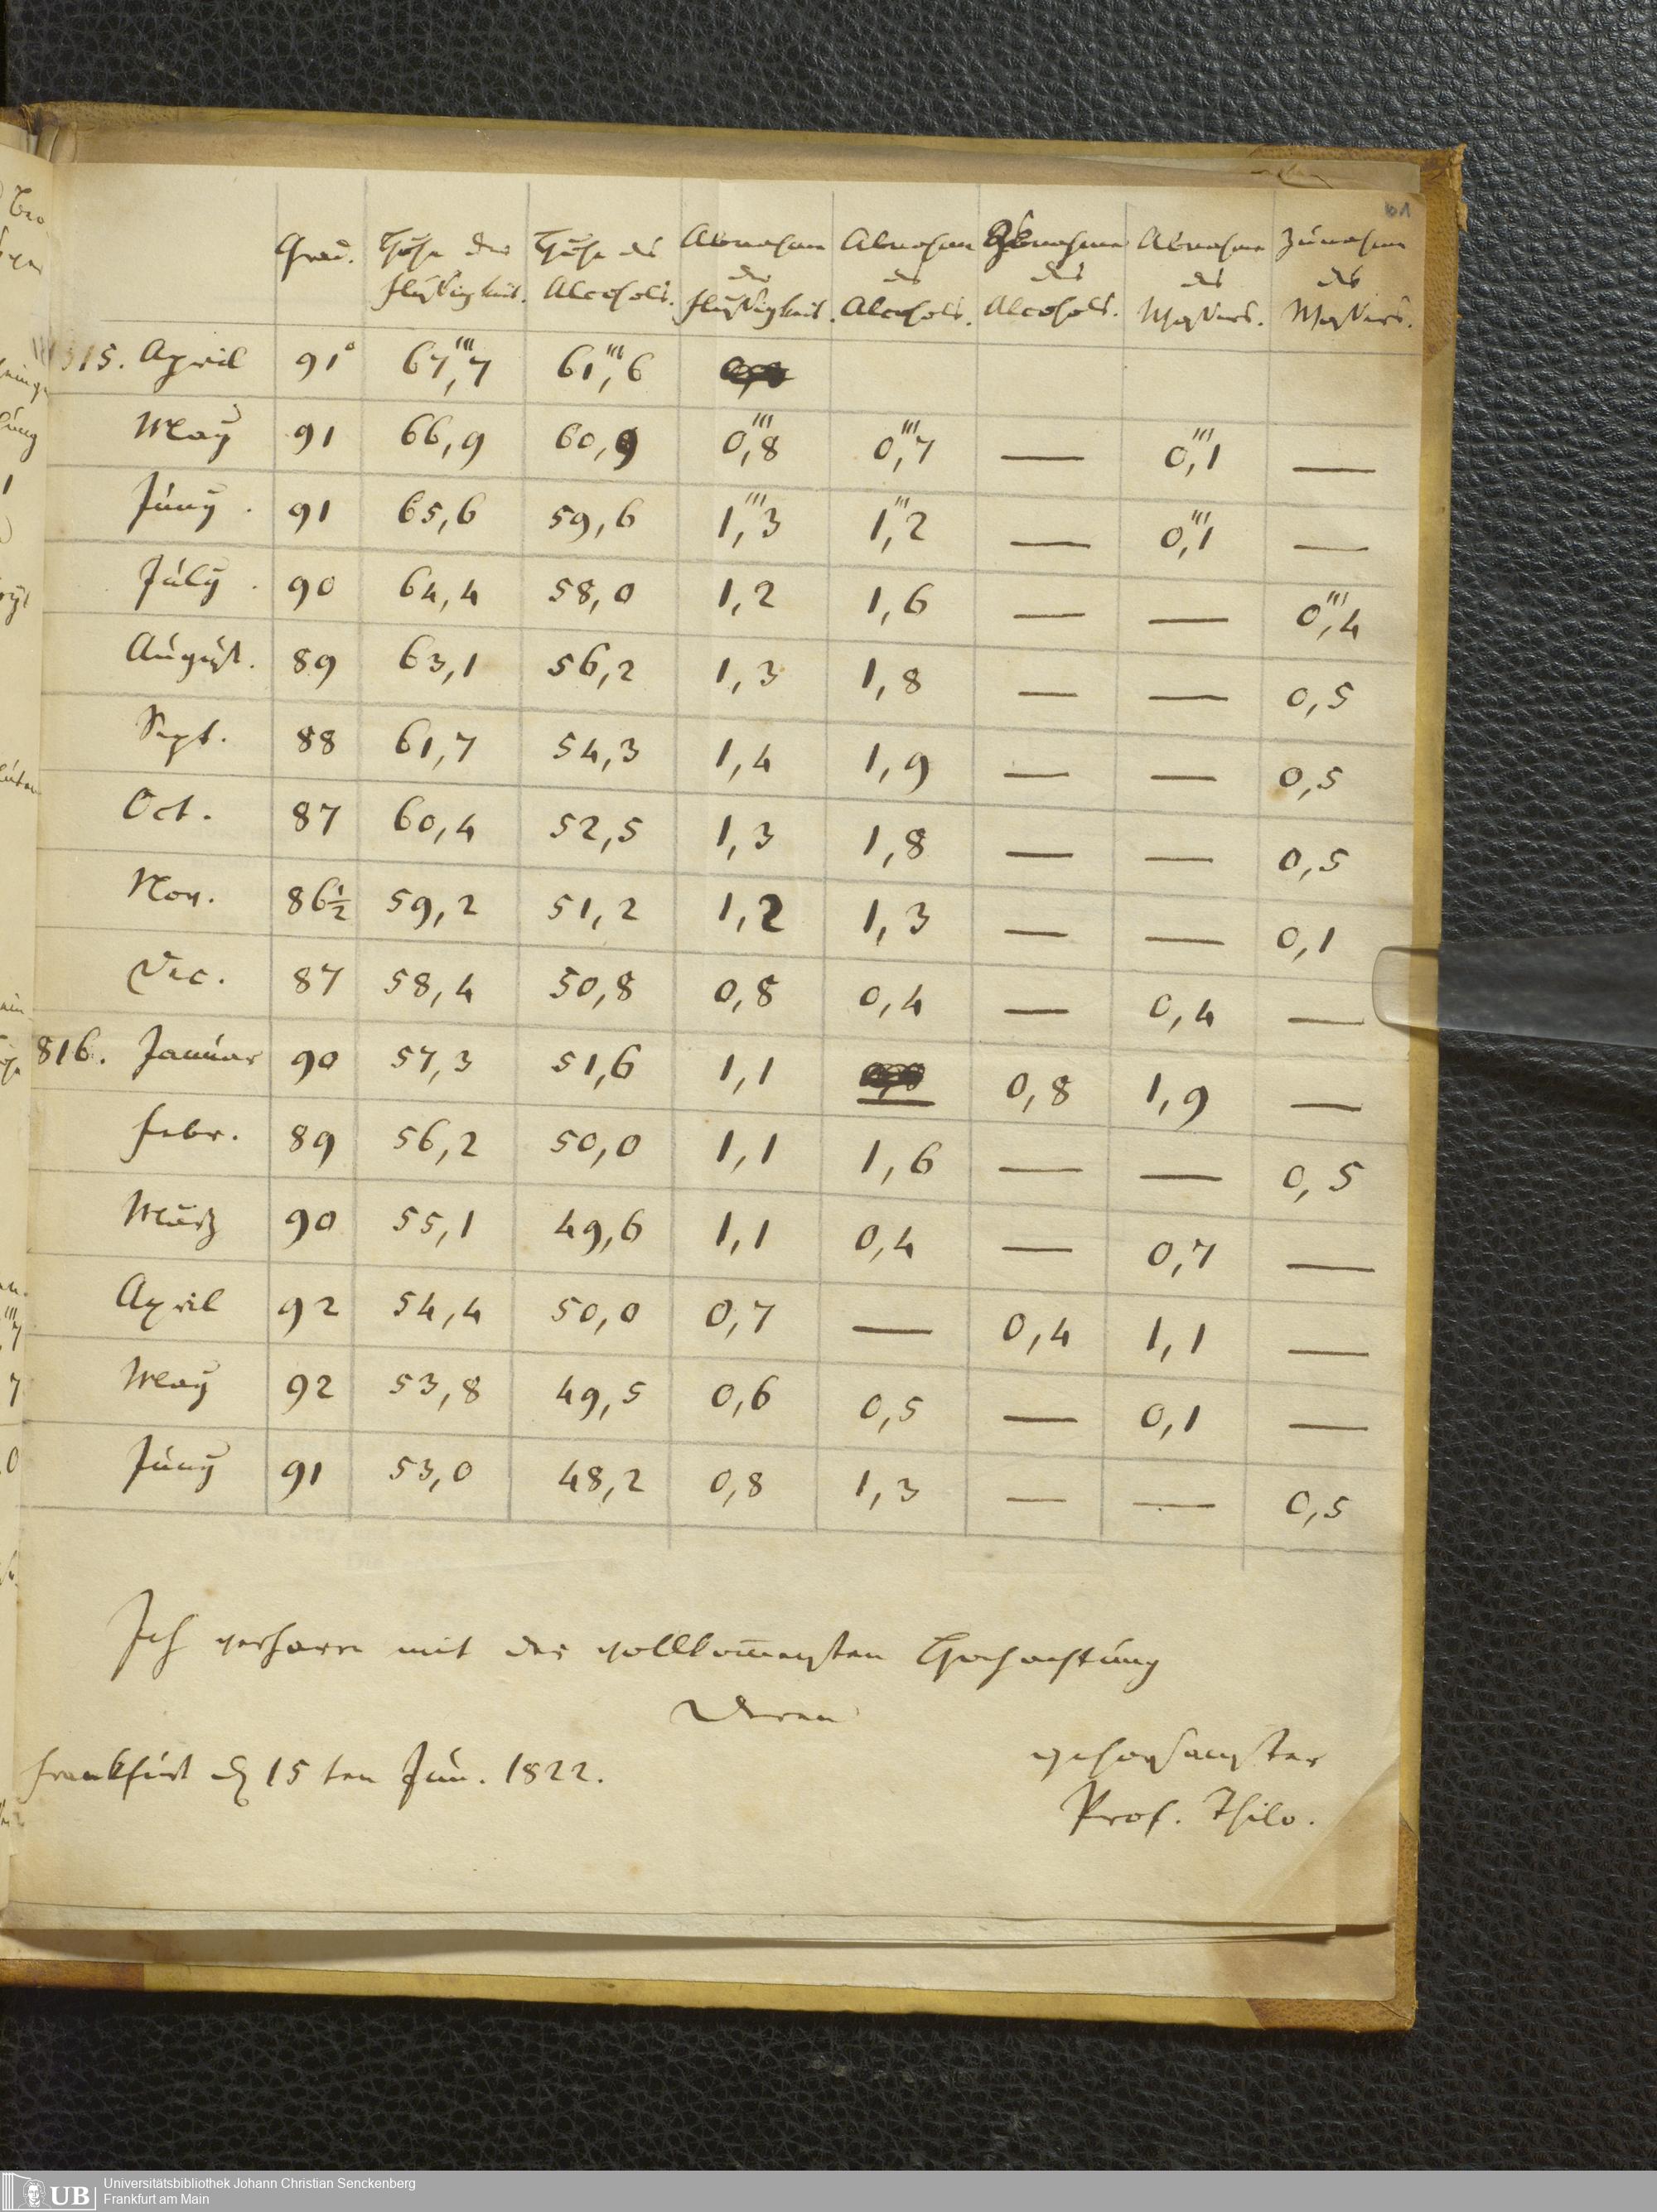 Grad. Höhe der Höhe des Abnahme Abnahme Abnahme Abnahme Zunahme
der des des des des
Flüßigkeit. Alcohols. Flüßigkeit. Alcohols. Alcohols. Waßers. Waßers.
1815. April 91° 67,‴7 61,‴6
May 91 66,9 60,9 0,‴8 0,‴7 — 0,‴1 —
Juny. 91 65,6 59,6 1,‴3 1,‴2 — 0,‴1 —
July. 90 64,4 58,0 1,2 1,6 — — 0,‴4
August. 89 63,1 56,2 1,3 1,8 — — 0,5
Sept. 88 61,7 54,3 1,4 1,9 — — 0,5
Oct. 87 60,4 52,5 1,3 1,8 — — 0,5
Nov. 86½ 59,2 51,2 1,2 1,3 — — 0,1
Dec. 87 58,4 50,8 0,8 0,4 — 0,4 —
816. Januar 90 57,3 51,6 1,1 — 0,8 1,9 —
Febr. 89 56,2 50,0 1,1 1,6 — — 0,5
März 90 55,1 49,6 1,1 0,4 — 0,7 —
April 92 54,4 50,0 0,7 — 0,4 1,1 —
May 92 53,8 49,5 0,6 0,5 — 0,1 —
Juny 91 53,0 48,2 0,8 1,3 — — 0,5
Ich verharre mit der vollkom̅ensten Hochachtung
Deren
gehorsamster
Frankfurt d 15ten Jun. 1822.
Prof. Thilo.
UB Universitätsbibliothek Johann Christian Senckenberg
Frankfurt am Main